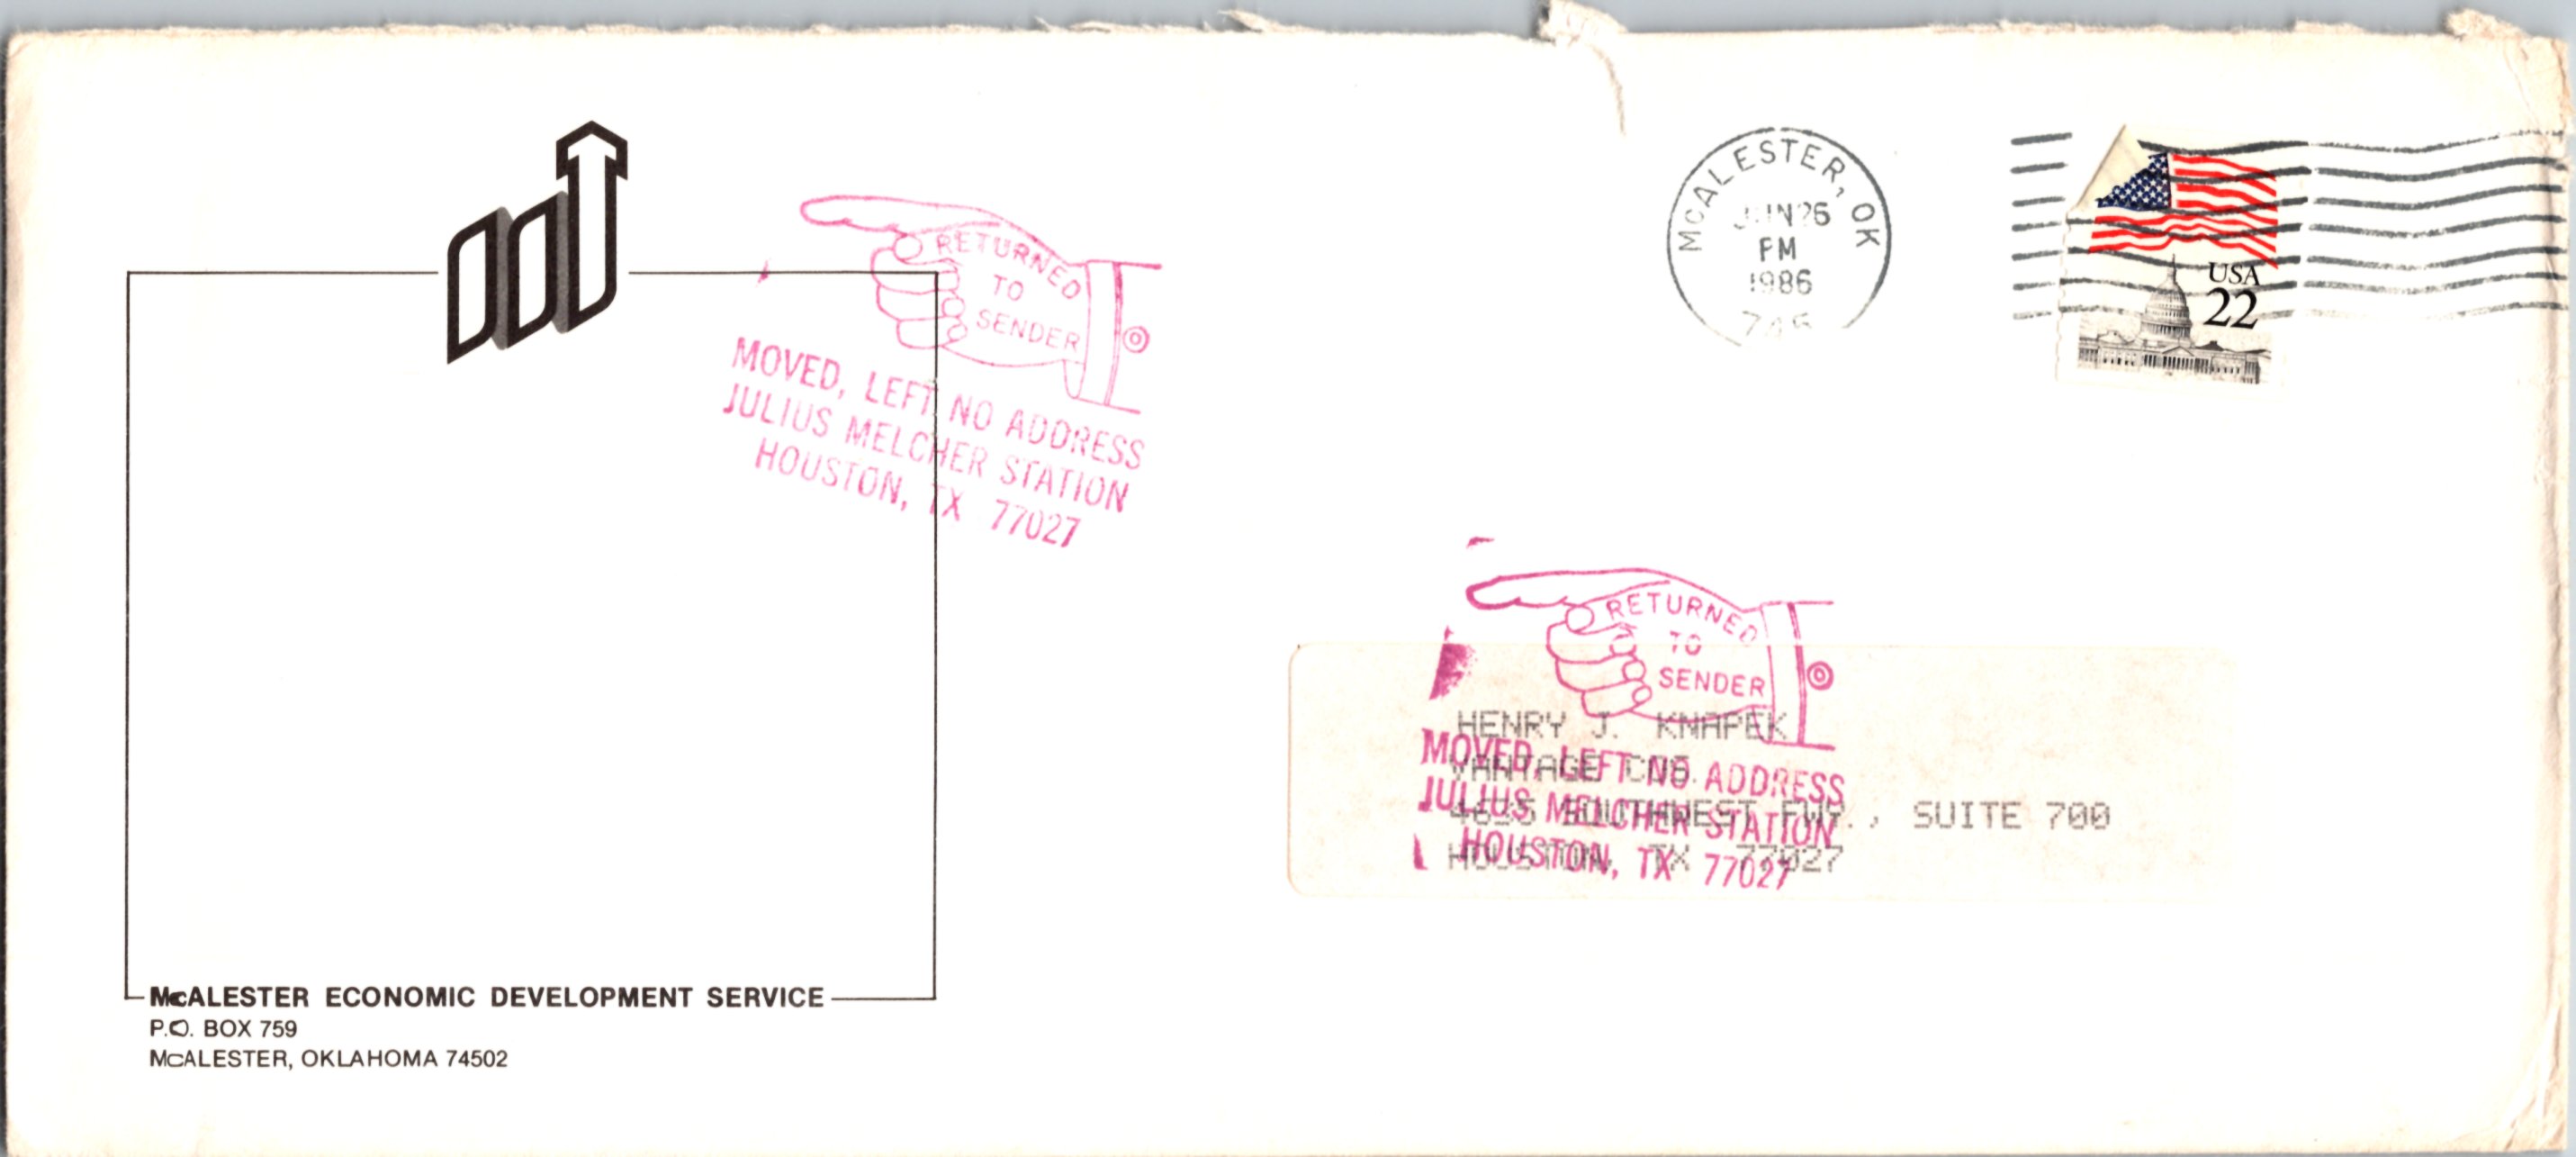 McALESTER, OK
JUN 26
PM
1986
USA
22
RETURNED
TO
SENDER
MOVED, LEFT NO ADDRESS
JULIUS MELCHER STATION
HOUSTON, TX 77027
RETURNED
TO
SENDER
MOVED, LEFT NO ADDRESS
JULIUS MELCHER STATION
HOUSTON, TX 77027
HENRY J. KNAPEK
VANTAGE COS.
SOUTHWEST FWY., SUITE 700
HOUSTON, TX 77027
McALESTER ECONOMIC DEVELOPMENT SERVICE
P.O. BOX 759
McALESTER, OKLAHOMA 74502